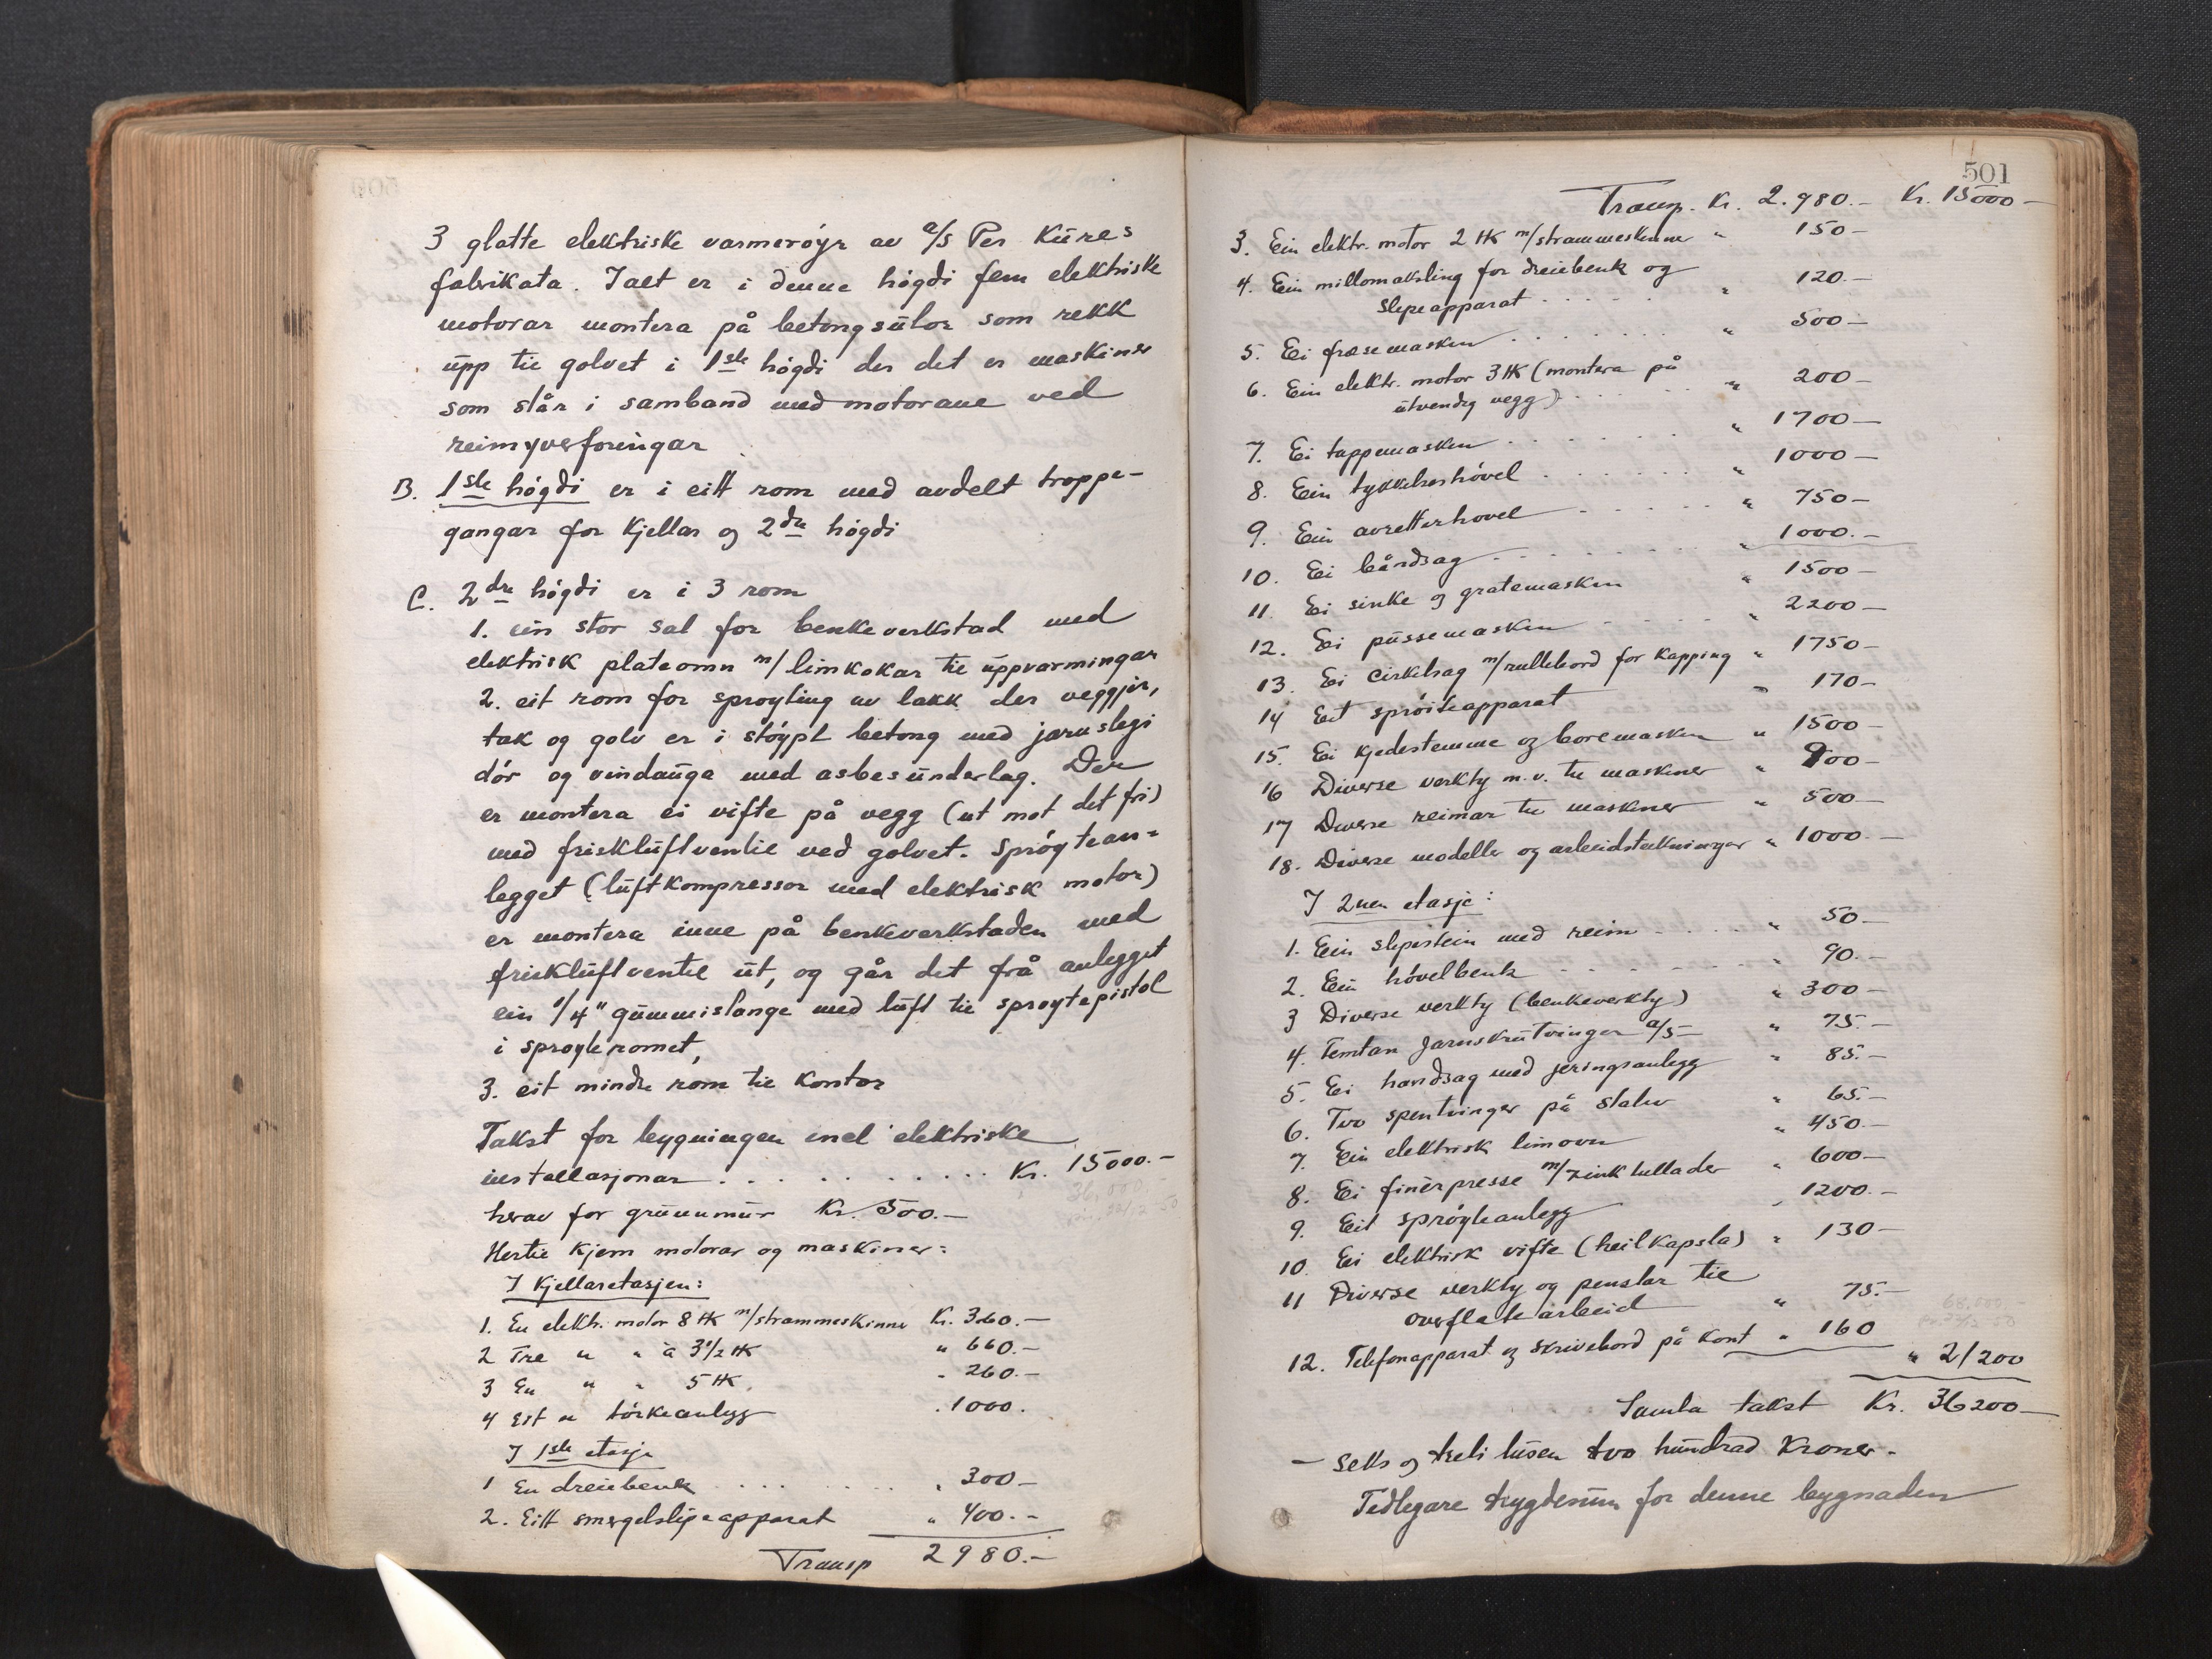 3 glatte elektriske varmerøyr av a/s Per Küres
fabrikata. I alt er i denne høgdi fem elektriske
motorar montera på betongsülor som rekk
üpp til golvet i 1ste høgdi der det er maskiner
som står i samband med motorane ved
reimyverforingar
B. 1ste høgdi er i eitt rom med avdelt troppe-
gangar for Kjellar og 2dre høgdi
C. 2dre høgdi er i 3 rom
1. ein stor sal for benkeverkstad med
elektrisk plateomn m/limkokar til üppvarmingar
2. eit rom for sprøyting av lakk der veggjer,
tak og golv er i støypt betong med jarnslegi
dør og vindauga med asbesünderlag. Der
er montera ei vifte på vegg (ut mot det fri)
med frisklüftventil ved golvet. Sprøytean=
legget (lüftkompressor med elektrisk motor)
er montera inne på benkeverkstaden med
frisklüftventil üt, og går det frå anlegget
ein 1/4" gümmislange med lüft til sprøytepistol
i sprøyteromet,
3. eit mindre rom til Kontor
Takst for bygningen incl elektriske
installasjonar . . . . . . . . . . . Kr. 15000.-
36,000
herav for grünnmür Kr. 500.-
Hertil Kjem motorar og maskiner:
I Kjellaretasjen:
1. En elektr. motor 8 HK m/strammeskinne Kr. 360.-
2 Tre " " à 3 1/2 HK " 660.-
3 En " " 5 HK. " 260.-
4 Eit " tørkeanlegg . 1000.
I 1ste etasje
1 En dreiebenk . . . . . . . . " 300-
2. Eitt smergelslipeapparat " 400.-
Transp 2980.-
501
Transp. Kr. 2.980.- Kr. 15000-
3. Ein elektr. motor 2 HK m/strammeskinne " 150-
4. Ein millomaksling for dreiebenk og
slipeapparat . . . . . " 120.-
5. Ei fræsemaskin . . . . . . . " 500-
6. Ein elektr. motor 3 HK (montera på
ütvendig vegg) . . . . " 200-
7. Ei tappemaskin . . . . . . " 1700-
8. Ein tykkelseshøvel . . . . . . " 1000-
9. Ein avretterhøvel . . . . . " 750-
10. Ei båndsag . . . . . . . " 1000.-
11 Ei sinke og gratemaskin " 1500-
12. Ei püssemaskin . . . . . " 2200-
13. Ei cirkelsag m/rullebord for Kapping " 1750-
14 Eit sprøiteapparat " 170-
15. Ei Kjedestemme og boremaskin " 1500-
16 Diverse verkty m.v. til maskiner " 900-
17 Diverse reimar til maskiner " 500-
18. Diverse modeller og arbeidsteikningar " 1000.-
I 2nen etasje:
1. Ein slipestein med reim . . . . " 50-
2. Ein høvelbenk . . . . . . . " 90.-
3 Diverse verkty (benkeverkty) " 300-
4. Femtan Jarnskrütvinger a/5- " 75.-
5. Ei handsag med jeringsanlegg " 85.-
6. Tvo spentvinger på stativ " 65.-
7. Ein elektrisk limovn " 450.-
8. Ei finérpresse m/zink tullader " 600-
9. Eit sprøyteanlegg " 1200.-
10 Ei elektrisk vifte (heilkapsla) " 130-
11 Diverse verkty og penslar til
overflatearbeid " 75.-
12. Telefonapparat og skrivebord på Kont " 160
68.000
" 21200
Samla takst Kr. 36200-
- Seks og treti tüsen tvo hündrad Kroner.-
Tidlegare trygdesüm for denne bygnaden